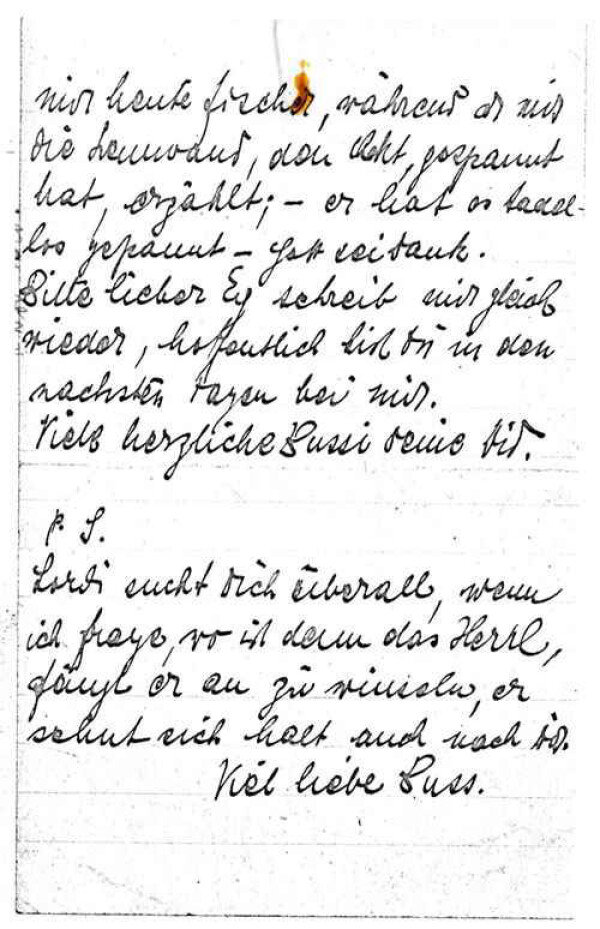 mir heute Fischer, während er mir
die Leinwand, den Akt, gespannt
hat, erzählt; – er hat es tadel-
los gepannt – Gott sei Dank.
Bitte lieber schreib mir gleich
wieder, hoffentlich bist Du in den
nachsten Tagen bei mir.
Viele herzliche Bussi Deine
P. S.
Lordi sucht Dich überall, wenn
ich frage, wo ist denn das Herrl,
fängt er an zu winseln, er
sehnt sich halt auch nach Dir.
Viel liebe Buss.